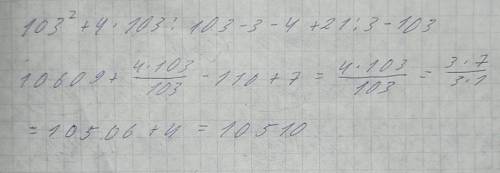 103² + 4 · 103 : 103 - 3 - 4 + 21 : 3 - 103
10609 + \frac{4 · 103}{103} - 110 + 7 = \frac{4 · 103}{103} = \frac{3 · 7}{3 · 1}
= 10506 + 4 = 10510